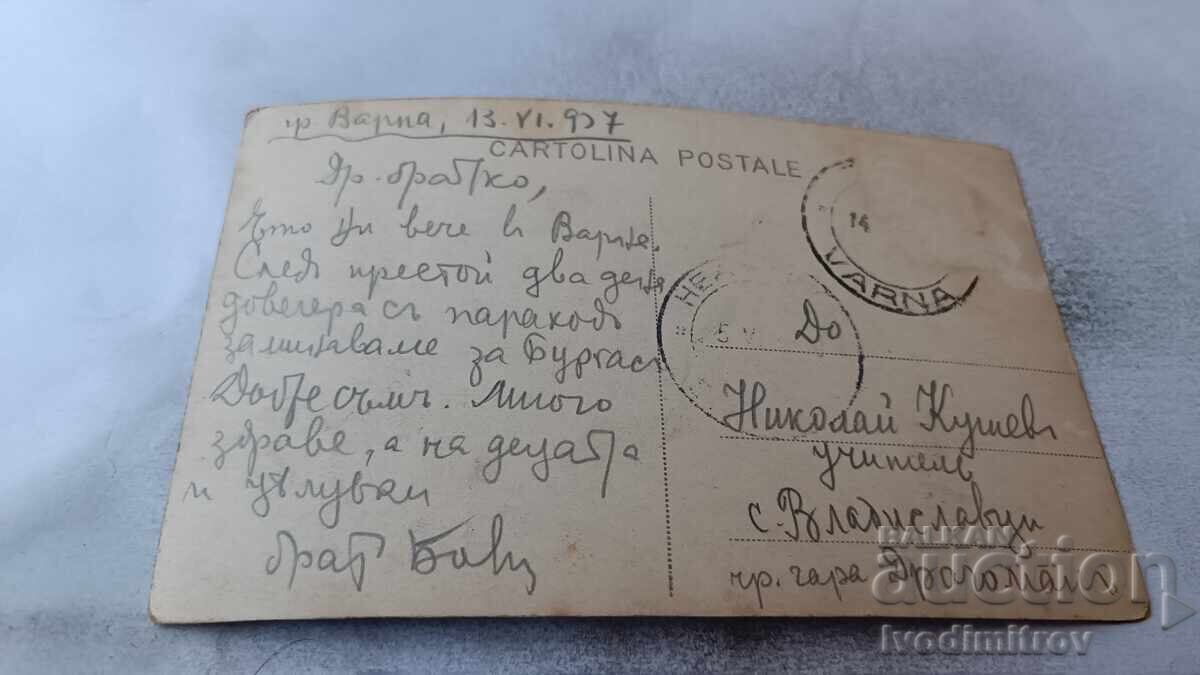 гр Варна, 13.VI.937
CARTOLINA POSTALE
Др. братко,
Ето ни вече въ Варна.
Следъ престой два дена
довечера съ параходъ
заминаваме за Бургасъ
Добре съмъ. Много
здраве, а на децата
и цѣлувки
братъ
14
VARNA
5 V
До
Николай Кушевъ
учитель
с. Владиславци
чр. гара Драгоманъ
BALKAN
auction
Ivodimitrov